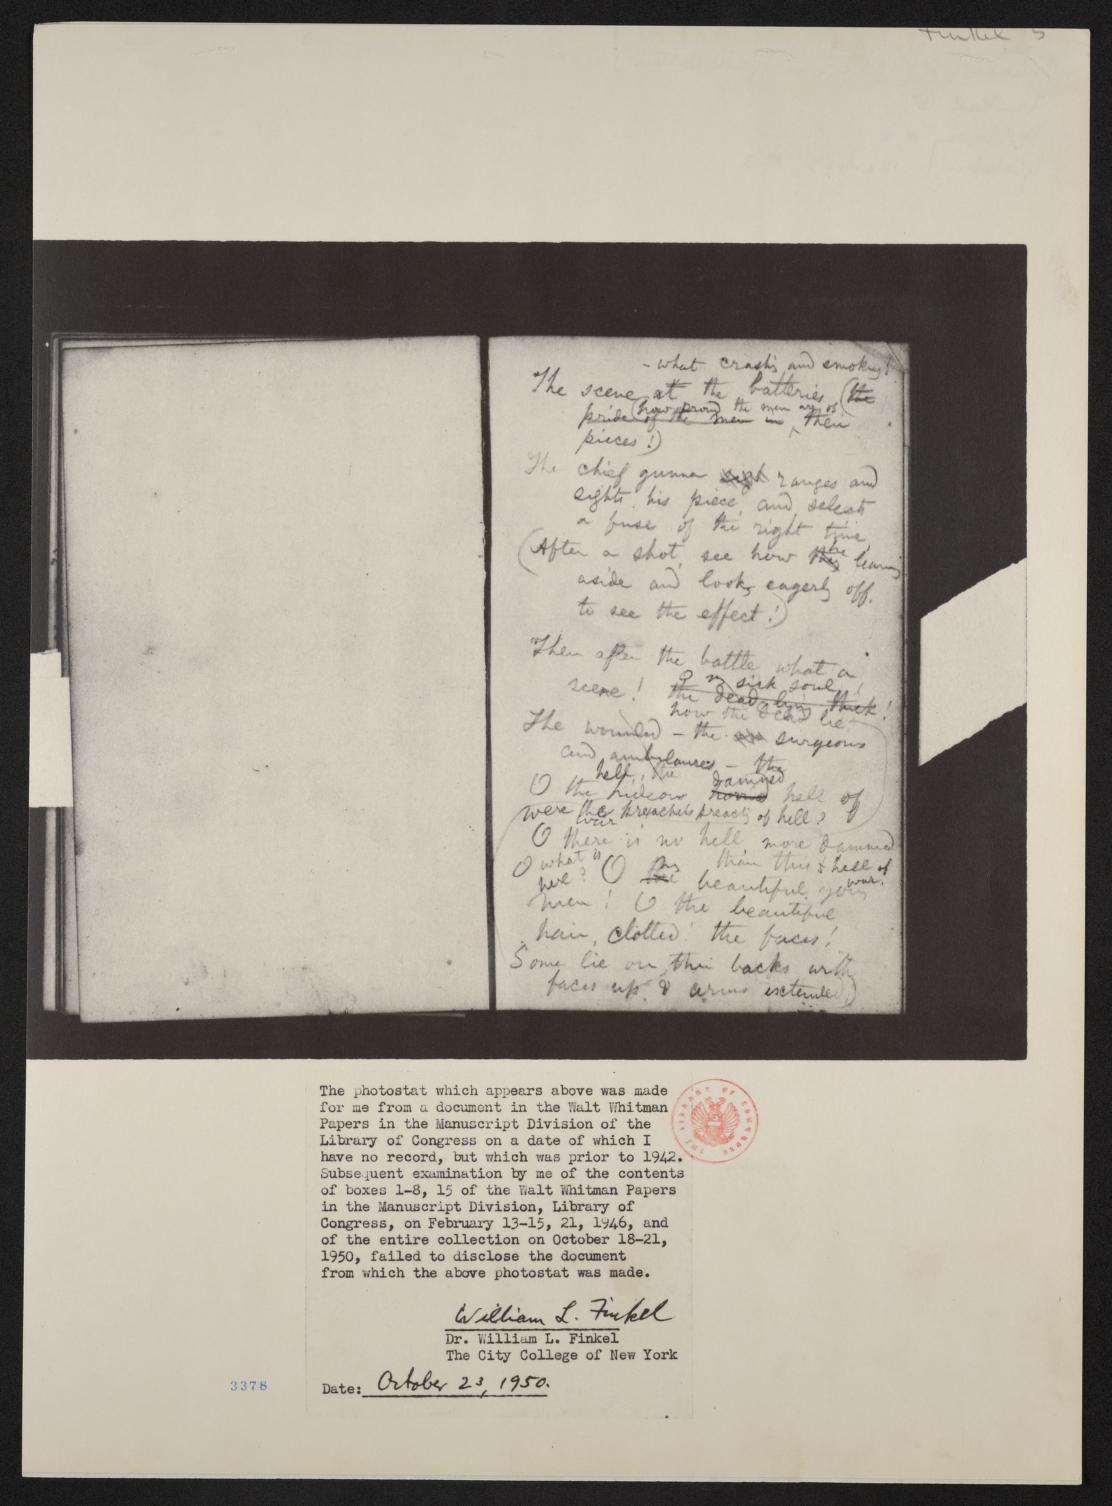 Finkel 5
— what crashing and smoking!
The scene at the batteries (the
(how proud the men are of
pride of the men in their
pieces!)
The chief gunner sight ranges and
sights his piece, and selects
a fuse of the right time,
(After a shot, see how they he leaning
aside and looks eagerly off,
to see the effect!)
Then after the battle what a
O my sick soul!
scene! the dead lying thick!
how the dead lie
The wounded — the surgeons
and ambulances — the
hell, the damned
O the hideous horrid hell of
were the preachers preaching of hell?
war
O there is no hell more damned
than this hell of
war.
O what is
here? O the my beautiful young
men! O the beautiful
hair, clotted! the faces!
Some lie on their backs with
faces up & arms extended)
The photostat which appears above was made
for me from a document in the Walt Whitman
Papers in the Manuscript Division of the
Library of Congress on a date of which I
have no record, but which was prior to 1942.
Subsequent examination by me of the contents
of boxes 1-8, 15 of the Walt Whitman Papers
in the Manuscript Division, Library of
Congress, on February 13-15, 21, 1946, and
of the entire collection on October 18-21,
1950, failed to disclose the document
from which the above photostat was made.
THE LIBRARY OF CONGRESS
William L. Finkel
Dr. William L. Finkel
The City College of New York
3378
Date: October 23, 1950.